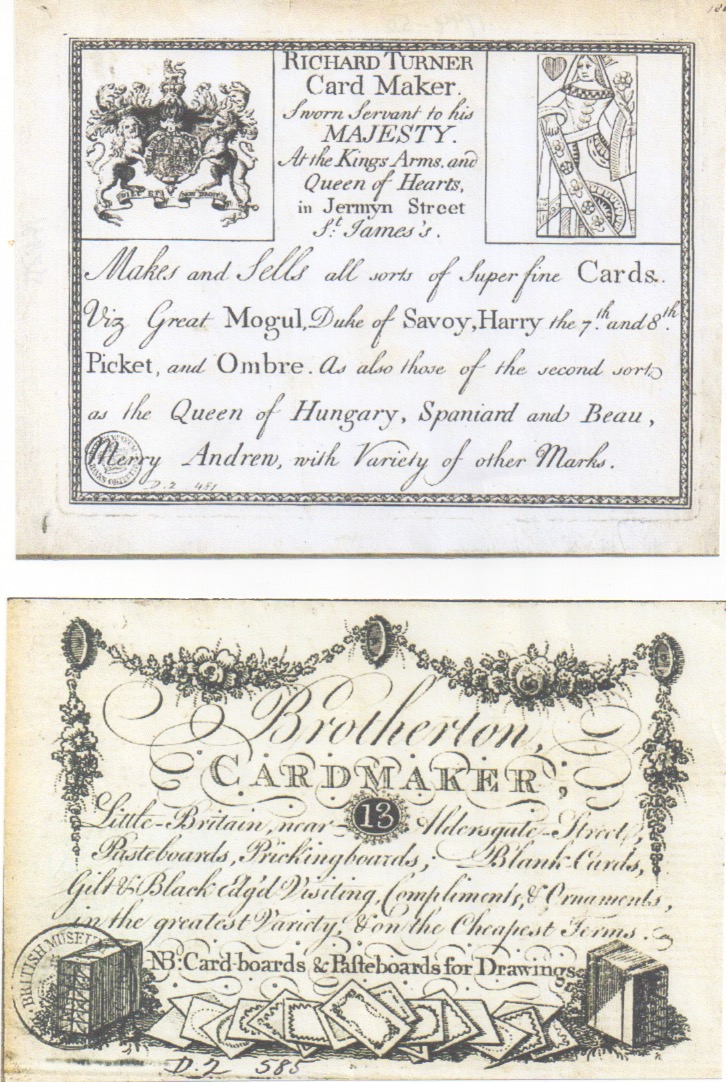 RICHARD TURNER
Card Maker.
Sworn Servant to his
MAJESTY.
At the Kings Arms, and
Queen of Hearts,
in Jermyn Street
St. James's.
Makes and Sells all sorts of Superfine Cards.
Viz Great Mogul, Duke of Savoy, Harry the 7th. and 8th.
Picket, and Ombre. As also those of the second sort
as the Queen of Hungary, Spaniard and Beau,
Merry Andrew, with Variety of other Marks.
D.2 451
Brotherton,
CARDMAKER,
Little-Britain, near 13 Aldersgate-Street,
Pasteboards, Prickingboards, Blank-Cards,
Gilt & Black edg'd Visiting, Compliments, & Ornaments,
in the greatest Variety, & on the Cheapest Terms.
NB: Card-boards & Pasteboards for Drawings
BRITISH MUSE
D.2 585